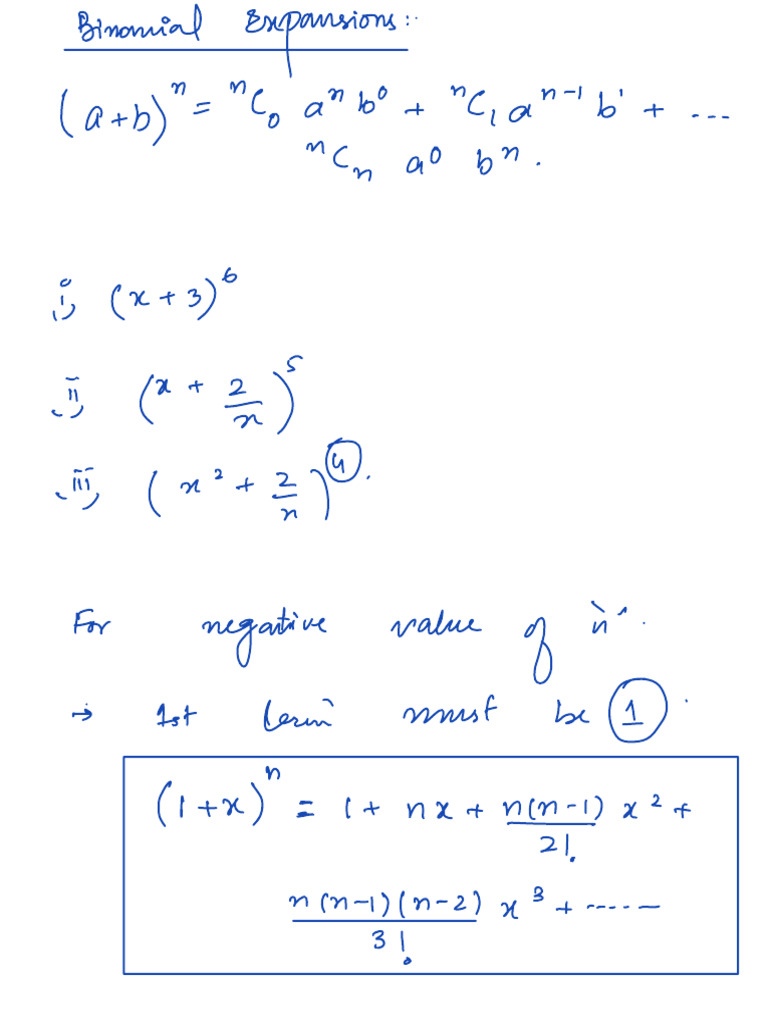 Binomial Expansions:
(a+b)ⁿ = ⁿC₀ aⁿ b⁰ + ⁿC₁ aⁿ⁻¹ b¹ + ...
ⁿCₙ a⁰ bⁿ.
i) (x + 3)⁶
ii) (x + 2/x)⁵
iii) (x² + 2/x)⁴.
For negative value of 'n'.
→ 1st term must be 1.
(1+x)ⁿ = 1 + nx + n(n-1)/2! x² +
n(n-1)(n-2)/3! x³ + ------